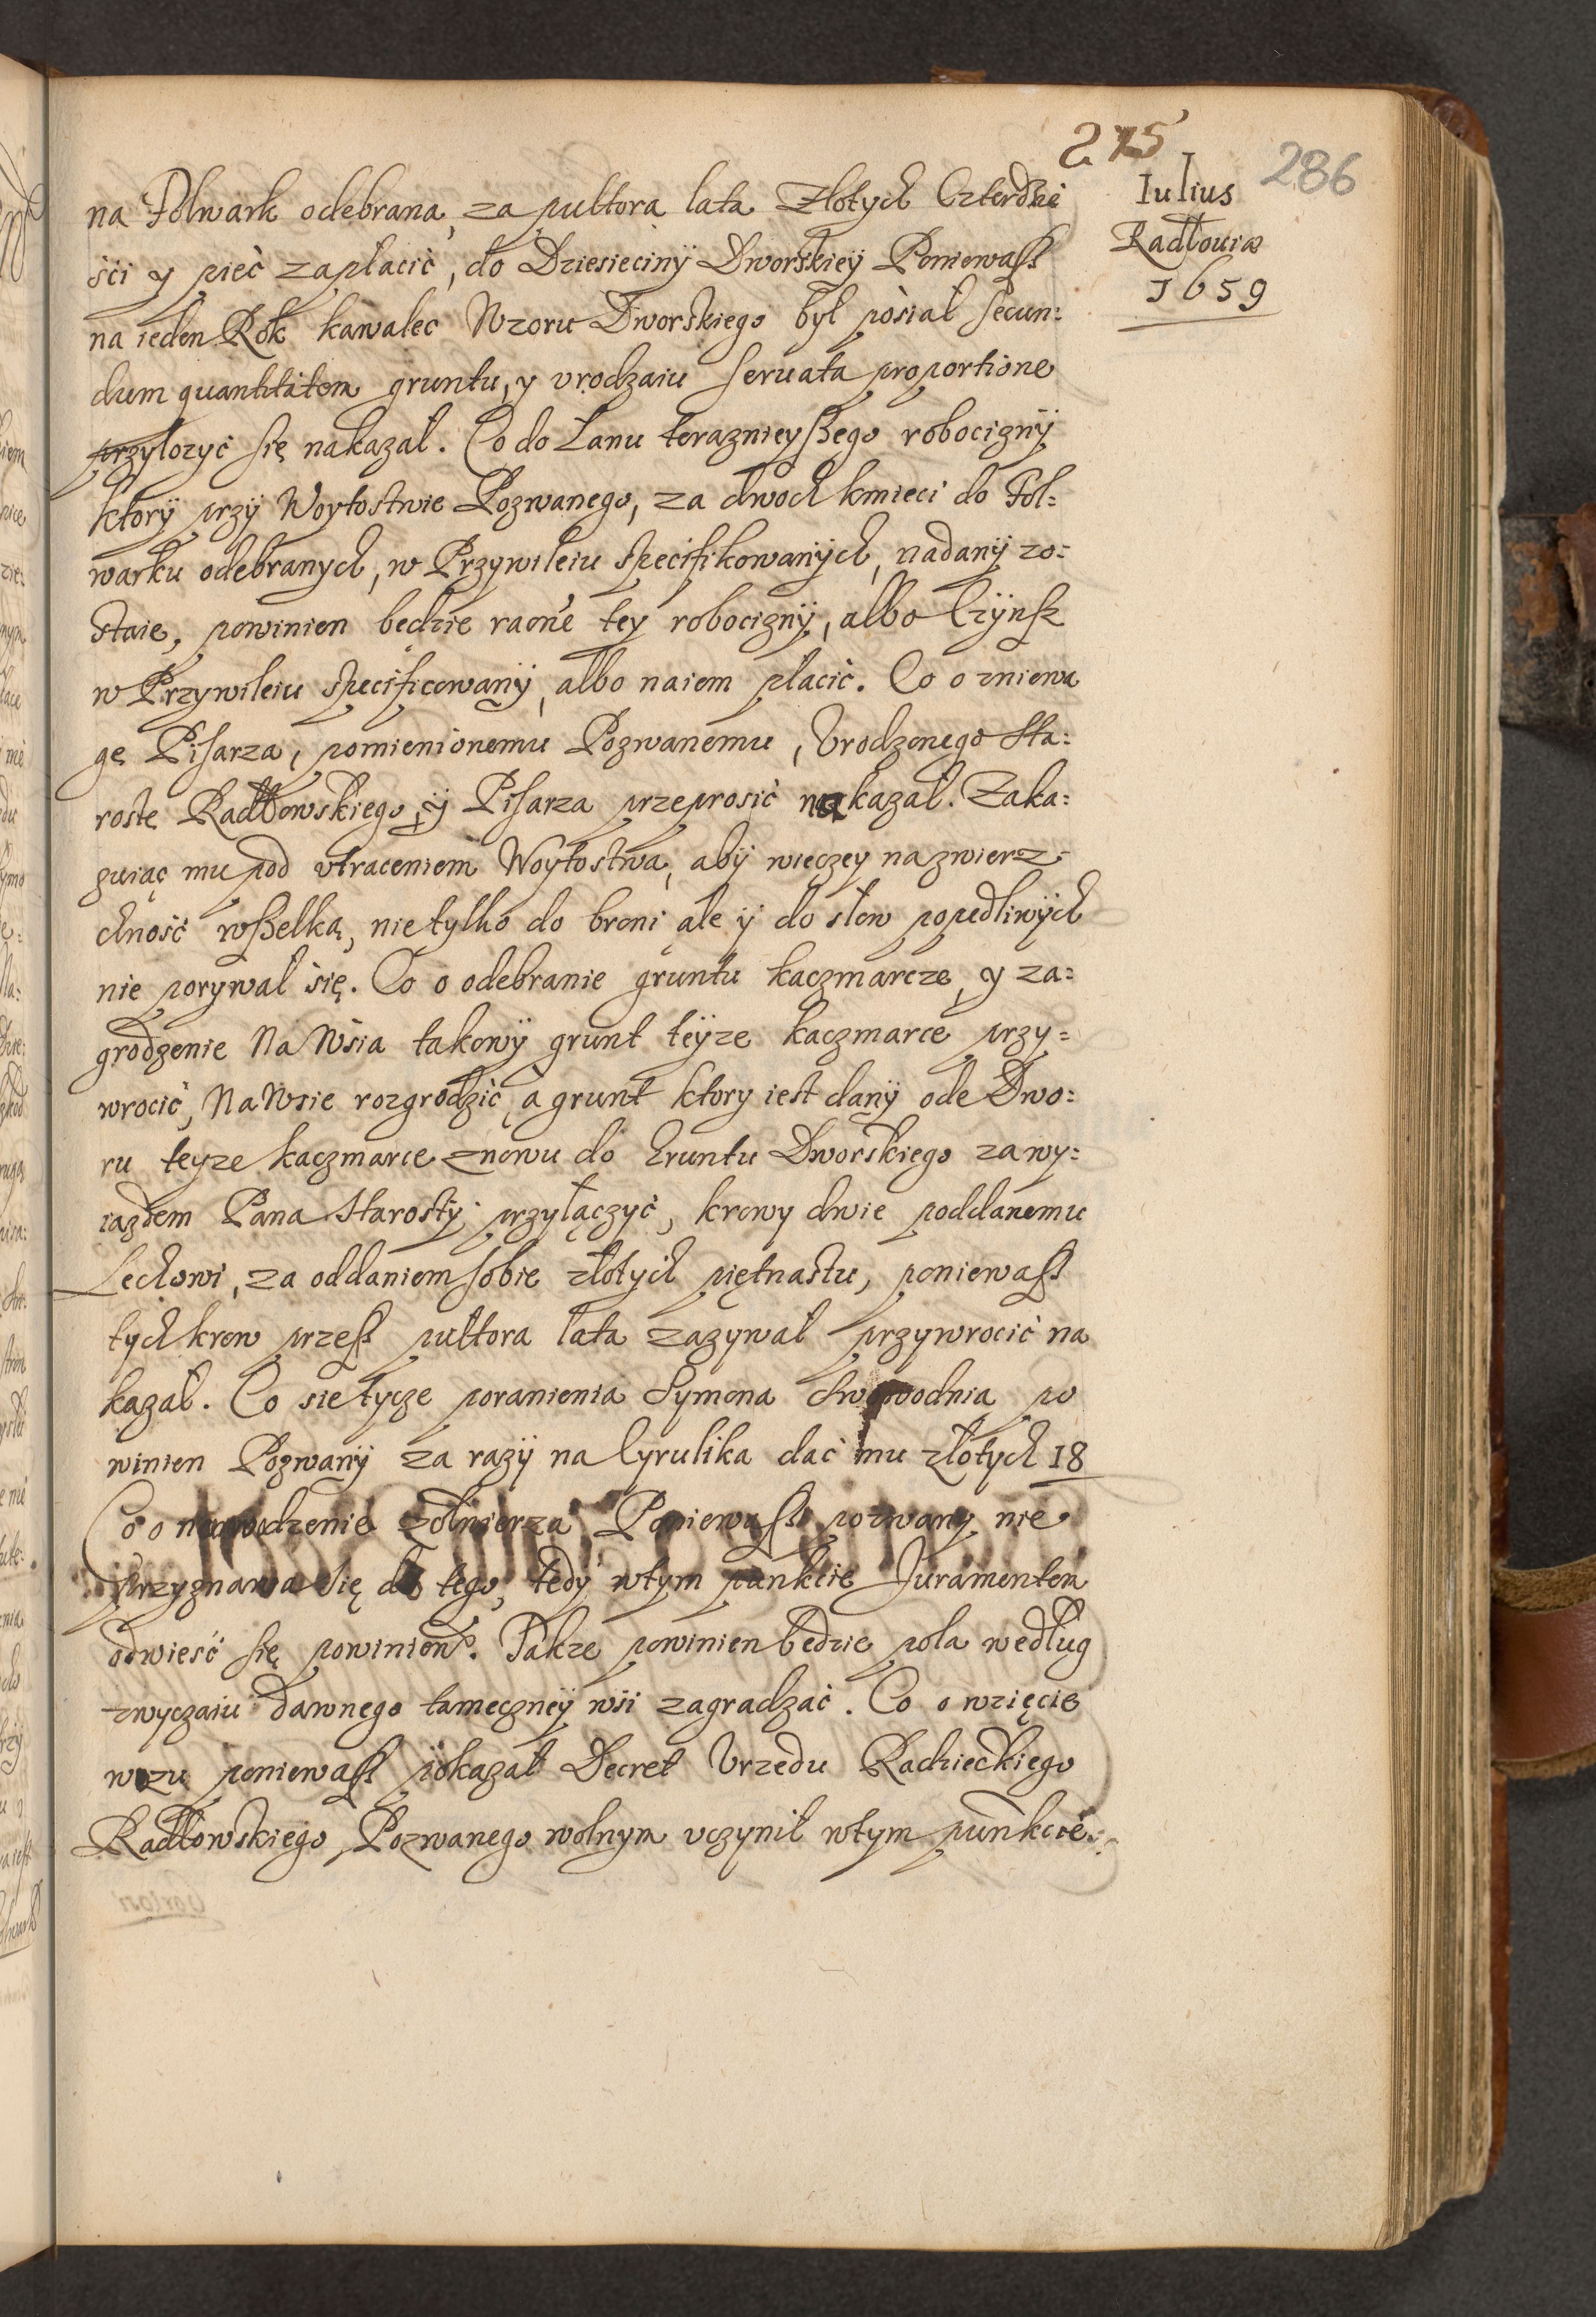 275
286
Iulius
Radłouiæ
1659
na Folwark odebrana, za pultora lata Złotych Czterdzie
ści y pieć zapłacić, do Dziesiecinÿ Dworskieÿ Poniewaſz
na ieden Rok kawalec Wzoru Dworskiego był pośiał ſecun=
dum quantitatem gruntu, y vrodzaiu ſeruata proportione
przylozyć ſię nakazał. Co do Lanu teraznieyßego robociznÿ
ktorÿ przÿ Woytostwie Pozwanego, za dwoch kmieci do Fol=
warku odebranych, w Przywileiu specifikowanÿch, nadanÿ zo=
staie, powinien bedzie racone tey robociznÿ, albo Czÿnsz
w Przywileiu specificowanÿ, albo naiem płacić. Co o zniewa
gę Piſarza, pomienionemu Pozwanemu, Vrodzonego Sta=
rostę Radłowskiego, ÿ Piſarza przeprosić nakazał. Zaka=
zuiąc mu pod vtraceniem Woytostwa, abÿ wieczey na zwierz=
chność wßelką, nie tylko do broni ale ÿ do słow popedliwÿch
nie porywał się. Co o odebranie gruntu kaczmarcze, y za=
grodzenie Na Wsia takowÿ grunt teÿze kaczmarce przy=
wrocić, Na Wsie rozgrodzić, a grunt ktory iest danÿ ode Dwo=
ru teyze kaczmarce znowu do Gruntu Dworskiego za wy=
iazdem Pana Starostÿ przyłączyć, krowy dwie poddanemu
Lechowi, za oddaniem ſobie złotÿch piętnastu, poniewaſz
tych krow przeſz pułtora lata zazywał przywrocić na
kazał. Co sie tycze poranienia Symona po
winien Pozwanÿ za razÿ na Cyrulika dać mu złotych 18
Co o nawodzenie Zołnierza Poniewaſz pozwany nie
przyznawa się do tego, tedÿ wtym punkcie Juramentem
odwieść się powinien. Takze powinien bedzie pola według
zwyczaiu dawnego tameczneÿ wśi zagradzać. Co o wzięcie
wozu poniewaſz pokazał Decret Vrzedu Radzieckiego
Radłowskiego, Pozwanego wolnym vczynił wtym punkcie.